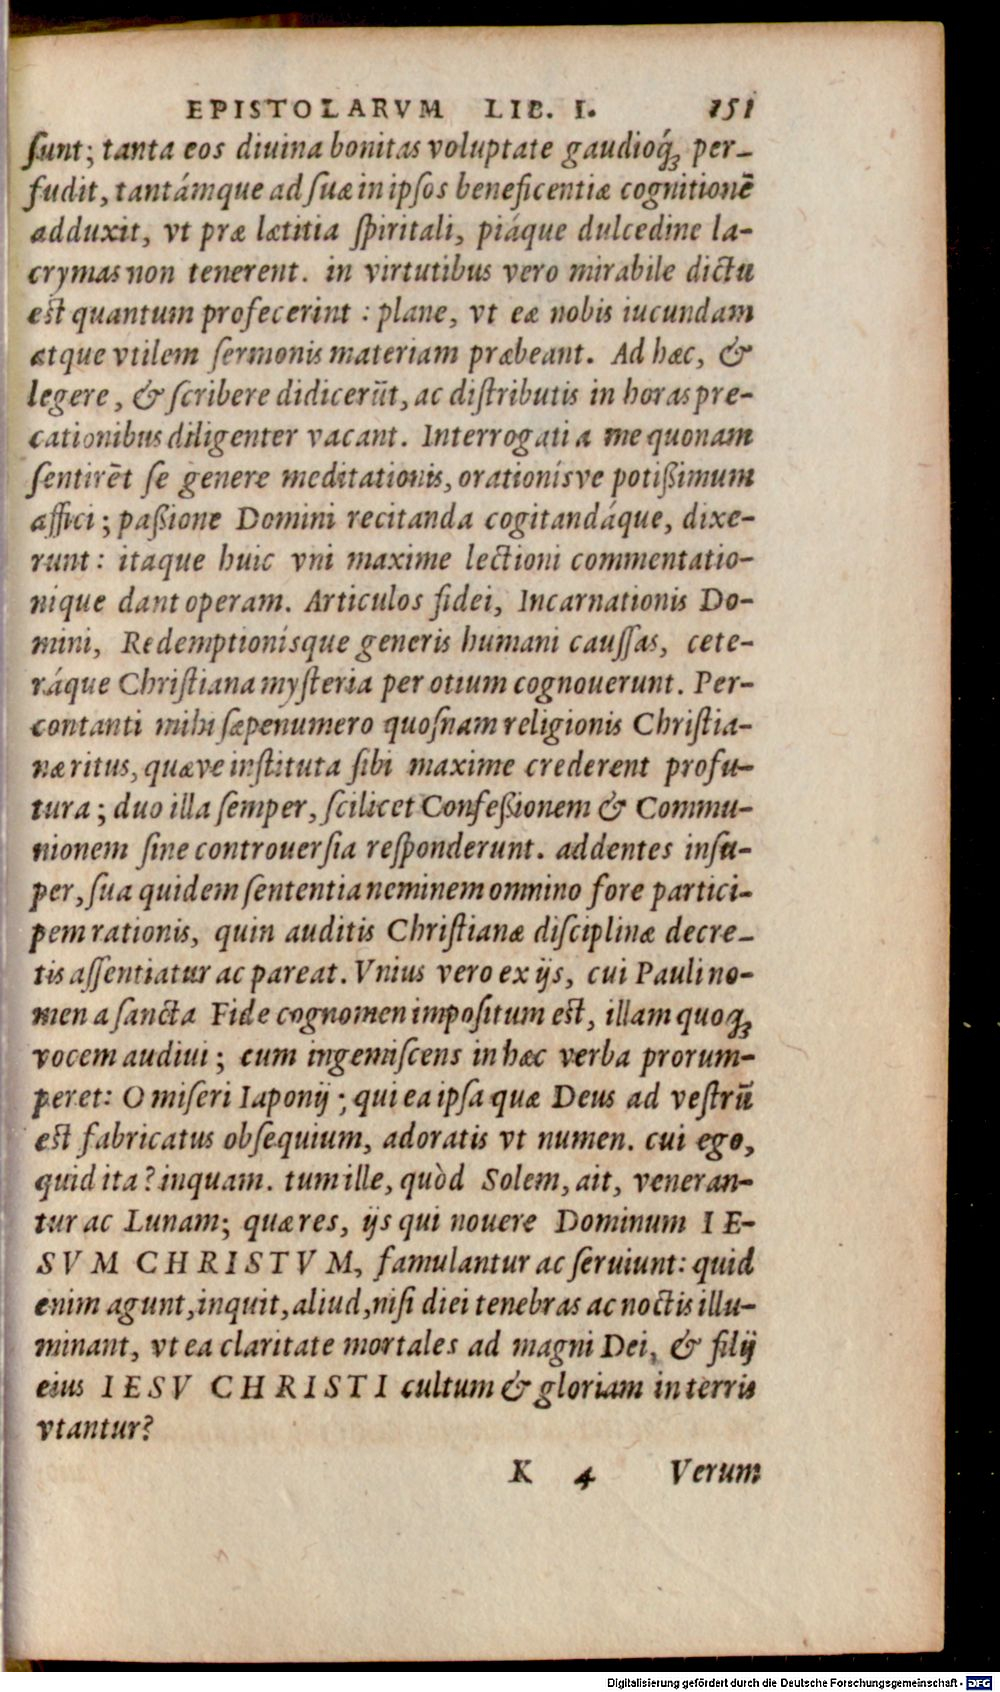 EPISTOLARVM LIB. I. 151
ſunt; tanta eos diuina bonitas voluptate gaudioq́ꝫ per-
fudit, tantámque ad ſuæ in ipſos beneficentiæ cognitionē
adduxit, vt præ lætitia ſpiritali, piáque dulcedine la-
crymas non tenerent. in virtutibus vero mirabile dictu
eſt quantum profecerint : plane, vt eæ nobis iucundam
atque vtilem ſermonis materiam præbeant. Ad hæc, &
legere, & ſcribere didicerūt, ac diſtributis in horas pre-
cationibus diligenter vacant. Interrogati a me quonam
ſentirēt ſe genere meditationis, orationísve potißimum
affici; paßione Domini recitanda cogitandáque, dixe-
runt: itaque huic vni maxime lectioni commentatio-
nique dant operam. Articulos fidei, Incarnationis Do-
mini, Redemptionísque generis humani cauſſas, cete-
ráque Chriſtiana myſteria per otium cognouerunt. Per-
contanti mihi ſæpenumero quoſnam religionis Chriſtia-
næ ritus, quæve inſtituta ſibi maxime crederent profu-
tura; duo illa ſemper, ſcilicet Confeßionem & Commu-
nionem ſine controuerſia reſponderunt. addentes inſu-
per, ſua quidem ſententia neminem omnino fore partici-
pem rationis, quin auditis Chriſtianæ diſciplinæ decre-
tis aſſentiatur ac pareat. Vnius vero ex ijs, cui Pauli no-
men a ſancta Fide cognomen impoſitum eſt, illam quoqꝫ
vocem audiui; cum ingemiſcens in hæc verba prorum-
peret: O miſeri Iaponij; qui ea ipſa quæ Deus ad veſtrū
eſt fabricatus obſequium, adoratis vt numen. cui ego,
quid ita? inquam. tum ille, quòd Solem, ait, veneran-
tur ac Lunam; quæ res, ijs qui nouere Dominum IE-
SVM CHRISTVM, famulantur ac ſeruiunt: quid
enim agunt, inquit, aliud, niſi diei tenebras ac noctis illu-
minant, vt ea claritate mortales ad magni Dei, & filij
eius IESV CHRISTI cultum & gloriam in terris
vtantur?
K 4 Verum
Digitalisierung gefördert durch die Deutsche Forschungsgemeinschaft - DFG